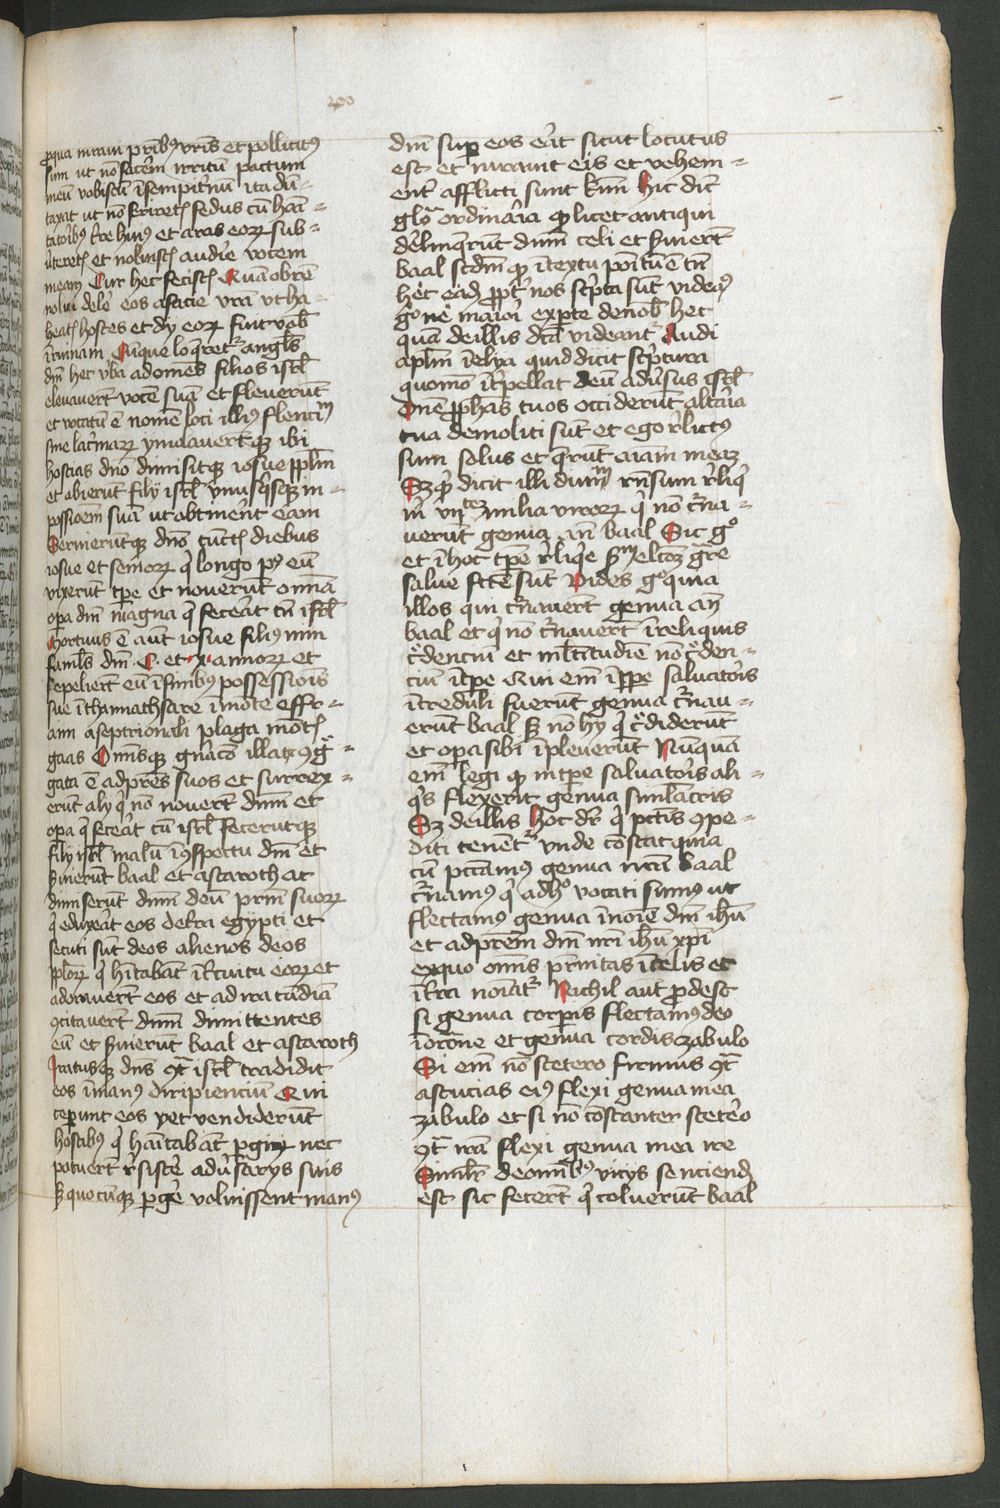 pqua iuraui pr̄ib9 vr̄is et pollicit9
sum ut nō facerē irritū pactum
meū vobiscū ī sempit'nū ita dū-
taxat ut nō feriretꝭ fedus cū hāi-
tatorib9 t're hui9 et aras eoꝝ sub-
u'teretꝭ et noluistꝭ audir̄e vocem
meam Cur hec fecistꝭ Quāobrē
nolui delē eos afacie vr̄a ut ha-
beatꝭ hostes et dij eoꝝ sint vob̄
ī ruinam Cūque loq̄retꝛ angl̄s
dn̄i hec vba adomēs filios isrl̄
eleuauert̄ vocē suā et fleuerūt
et vocatū ē nomē loci illi9 flenciū
siue lac'maꝝ ymolauert̄qꝫ ibi
hostias dn̄o dimisitqꝫ iosue pplm̄
et abierūt filij isrl̄ vnusq̄sqꝫ in-
possioēm suā ut obtinēr̄t eam
Serueruntqꝫ dn̄o cunctꝭ diebus
iosue et senioꝝ q̄ longo p9 eū
vixerūt tpe et nouerūt om̄ia
opa dn̄i magna q̄ feceāt cū isrl̄
Mortuus ē aūt iosue filius nun
famul̄s dn̄i C et x annoꝝ et
sepelierūt eū ī finib9 possessiōis
sue ī thamnathsare ī mōte effr-
aim aseptrionali plaga mōtꝭ
gaas Omīsqꝫ gn̄acō illa 9g̊-
gata ē adpr̄es suos et surrex-
erūt alij q̄ nō nouert̄ dnm̄ et
opa q̄ feceāt cū isrl̄ fecerutqꝫ
filij isrl̄ malū ī 9spectu dn̄i et
s'uierūt baal et astaroth ac
dimiserūt dnm̄ deū pr̄m suoꝝ
q̄ eduxeāt eos det'ra egypti et
secuti sūt deos alienos deos
pploꝝ q̄ hītabāt ī c'cuitu eoꝝ et
adorauert̄ eos et ad iracūdiā
9citauert̄ dnm̄ dimittentes
eū et s'uierūt baal et astaroth
Iratusqꝫ dn̄s 9tᵃ isrl̄ tradidit
eos ī man9 diripienciū Qui
ceperunt eos et vendiderūt
hostib9 q̄ hāitabāt p giꝝ nec
potuert̄ r̄sister̄e adu'sarijs suis
s' quocūqꝫ p ger̄e voluissent man9
dn̄i sup eos er̄at sicut locutus
est et iurauit eis et vehem-
ent' afflicti sunt Hic dic̄
glo̊ ordinar̄ia qꝫ licet antiqui
delinq̄runt dnm̄ celi et s'uiert̄
baal scdm̄ qꝫ ī textu poītū ē tn̄
hec ead̄ ꝓpt' nos sc'pta sūt videam9
g̊ ne maiori ex pte denob̄ hec
quā deillis dc̄a videant̄ꝛ Audi
aplm̄ ī elya quid dicit sc'ptura
quomō īt'pellat deū adu'sus isrl̄
Dn̄e ꝓphas tuos occiderūt altar̄ia
tua demoliti sūt et ego r̄lict9
sum solus et q̄rūt aīam meaꝫ
Sꝫ qᵈ dicit illi diuinū rn̄sum r̄liq̄
m̄ vij milia viroꝝ q̄ nō c'ua-
uerūt genua an̄ baal Sic g̊
et ī hoc tpe r̄liq̄e sm̄ elc̄oꝫ gr̄e
salue fc̄e sūt Vides g̊ quia
illos qui c'uauert̄ genua an̄
baal et q̄ nō c'uauert̄ ī reliquis
c'denciū et ml̄titudiē nō c'den-
ciū ī cipe Qui em̄ ī tpe saluatoris
ī creduli fuerūt genua c'uau-
erūt baal sꝫ nō hij q̄ c'diderūt
et opa sibi īpleuerūt Nūquā
em̄ legi qꝫ in tpe saluatoris ali-
q̄s flexerit genua simlacris
Sꝫ deillis hoc dr̄ q̄ pctis 9pe-
diti tenēt̄ꝛ vnde cōstat quia
cū pccam9 genua nr̄a baal
c'uam9 q̄ ad hͦ vocati sum9 ut
flectam9 genua ī noīe dn̄i ihū
et ad prēm dn̄i nr̄i ihū xpī
ex quo om̄is pr̄nitas ī celis et
ī t'ra noīatꝛ Nichil aūt ꝓdest
si genua corpis flectam9 deo
ī or̄cōne et genua cordis zabulo
Si em̄ nō stetero firmus 9tᵃ
astucias ei9 flexi genua mea
zabulo et si nō cōstanter stetero
9tᵃ irā flexi genua mea ire
Simil'r deomīb9 vicijs senciend
est sic fecert̄ q̄ coluerūt baal